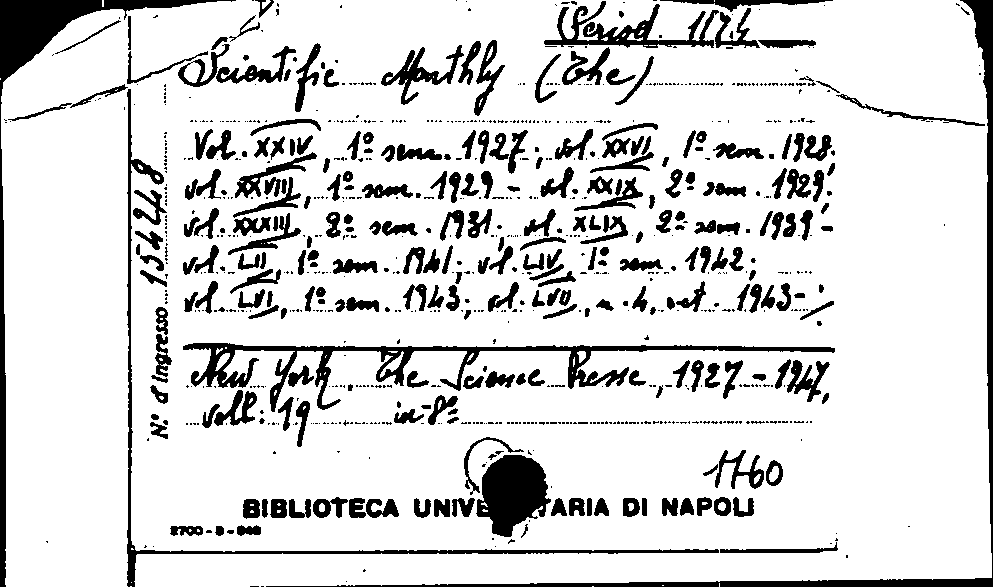 Period. 1174
Scientific Monthly (The)
Vol. XXIV, 1º sem. 1927; vol. XXVI, 1º sem. 1928;
vol. XXVIII, 1º sem. 1929 - vol. XXIX, 2º sem. 1929;
vol. XXXIII, 2º sem. 1931; vol. XLIX, 2º sem. 1939 -
vol. LII, 1º sem. 1941; vol. LIV, 1º sem. 1942;
vol. LVI, 1º sem. 1943; vol. LVII, n. 4, oct. 1943-
New York, The Science Presse, 1927 - 1947,
voll: 19 in-8º
1760
BIBLIOTECA UNIVE TARIA DI NAPOLI
N.º d'ingresso 154248